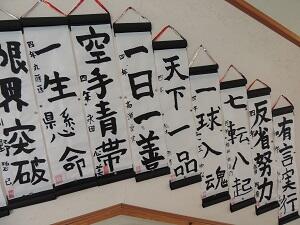 有言実行
反省努力
七転八起
一球入魂
天下一品
一日一善
空手青帯
一生懸命
限界突破